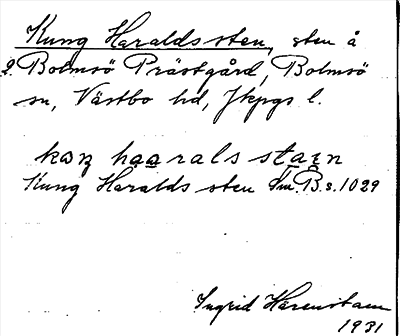 Kung Haralds sten, sten å
Bolmsö Prästgård, Bolmsö
sn, Västbo hd, Jkpgs l.
haarals
Kung Haralds sten Sm. B. s. 1029
Ingrid Härenstam
1931